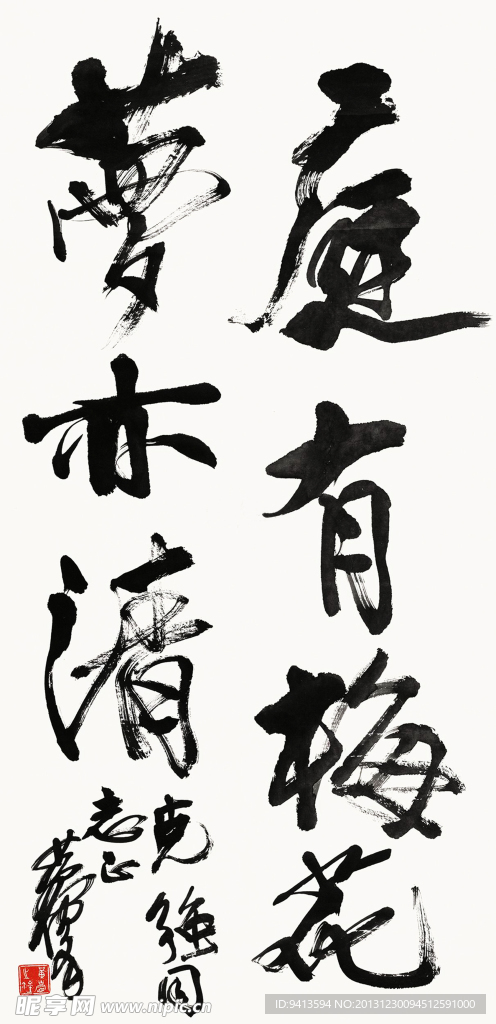 庭有梅花
夢亦清
克强同
志正
昵享网 www.nipic.cn
ID:9413594 NO:20131230094512591000